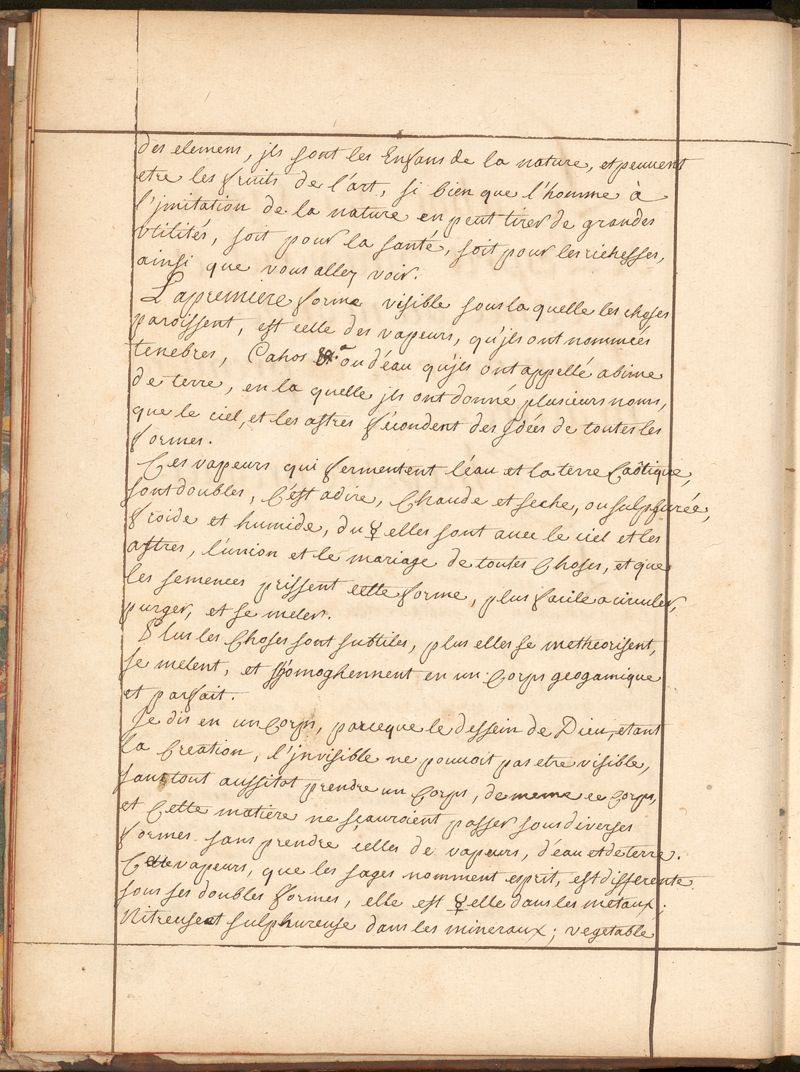 des elemens, jls sont les Enfans de la nature, et peuvent
etre les fruits de l'art, si bien que l'homme à
l'jmitation de la nature en peut tirer de grandes
vtilités, soit pour la santé, soit pour les richesses,
ainsi que vous allez voir.
La premiere forme visible sous la quelle les choses
paroissent, est celle des vapeurs, qu'jls ont nommées
tenebres, Cahos ou d'eau qu'jls ont appellé abime
de terre, en la quelle jls ont donné plusieurs noms,
que le ciel, et les astres fécondent des jdées de toutes les
formes.
Ces vapeurs qui fermentent l'eau et la terre Caötique,
sont doubles, C'est adire, Chaude et seche, ou sulphurée,
froide et humide, du ☿ elles sont avec le ciel et les
astres, l'union et le mariage de toutes Choses, et que
les semences prissent cette forme, plus facile a circuler,
purger, et se meler.
Plus les Choses sont subtiles, plus elles se metheorisent,
se melent, et s'homoghennent en un Corps geogamique
et parfait.
Je dis en un Corps, parceque le dessein de Dieu, etant
la Creation, l'jnvisible ne pouvoit pas etre visible,
sans tout aussitot prendre un Corps, de meme ce Corps,
et Cette matiere ne scauroient passer sous diverses
formes sans prendre celles de vapeurs, d'eau et de terre.
Cette vapeurs, que les sages nomment esprit, est differente
sous ses doubles formes, elle est ☿elle dans les metaux;
Nitreuse et sulphureuse dans les mineraux; vegetable